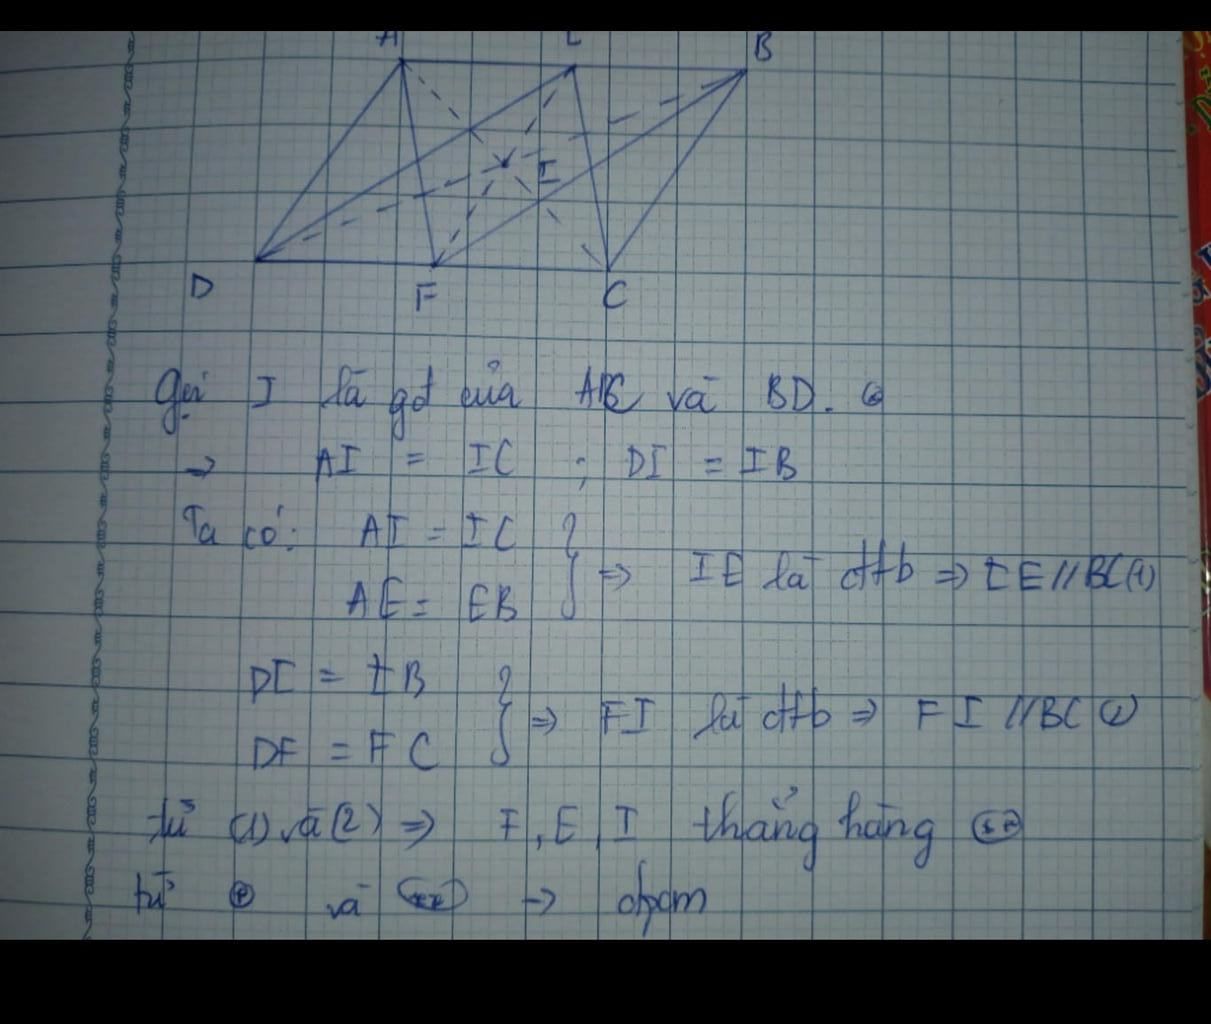 A E B
I
D F C
Gọi I là gđ của AC và BD. (*)
⇒ AI = IC ; DI = IB
Ta có: AI = IC
AE = EB } ⇒ IE là đtb ⇒ IE // BC (1)
DI = IB
DF = FC } ⇒ FI là đtb ⇒ FI // BC (2)
từ (1) và (2) ⇒ F, E, I thẳng hàng (**)
từ (*) và (**) → đpcm